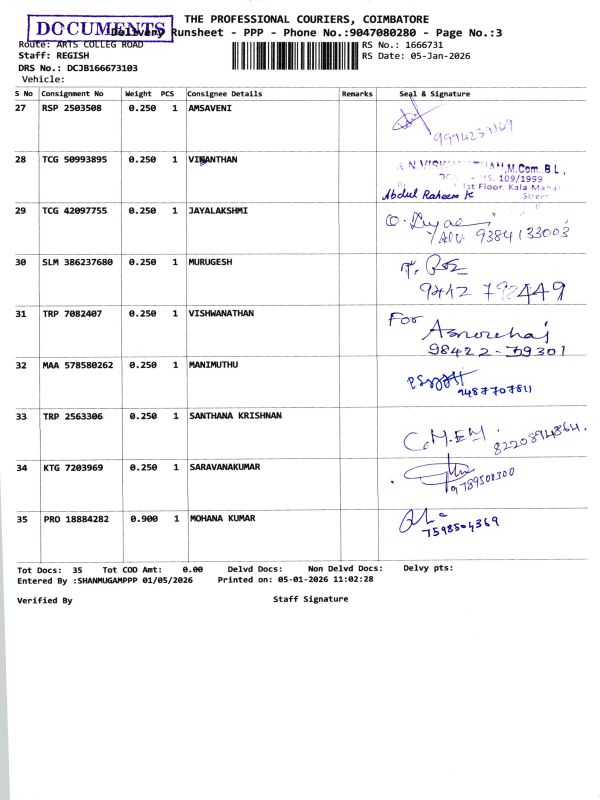 DOCUMENTS
THE PROFESSIONAL COURIERS, COIMBATORE
Delivery Runsheet - PPP - Phone No.:9047080280 - Page No.:3
Route: ARTS COLLEG ROAD
RS No.: 1666731
Staff: REGISH
RS Date: 05-Jan-2026
DRS No.: DCJB166673103
Vehicle:
S No Consignment No Weight PCS Consignee Details Remarks Seal & Signature
27 RSP 2503508 0.250 1 AMSAVENI
28 TCG 50993895 0.250 1 VISWANTHAN
M.Com., B L,
109/1999
1st Floor, Kala Mahal
Street
Abdul Raheem K
29 TCG 42097755 0.250 1 JAYALAKSHMI
9384133003
30 SLM 386237680 0.250 1 MURUGESH
31 TRP 7082407 0.250 1 VISHWANATHAN
For
98422-39301
32 MAA 578580262 0.250 1 MANIMUTHU
9487707811
33 TRP 2563306 0.250 1 SANTHANA KRISHNAN
34 KTG 7203969 0.250 1 SARAVANAKUMAR
9789508300
35 PRO 18884282 0.900 1 MOHANA KUMAR
7598504369
Tot Docs: 35 Tot COD Amt: 0.00 Delvd Docs: Non Delvd Docs: Delvy pts:
Entered By :SHANMUGAMPPP 01/05/2026 Printed on: 05-01-2026 11:02:28
Verified By Staff Signature